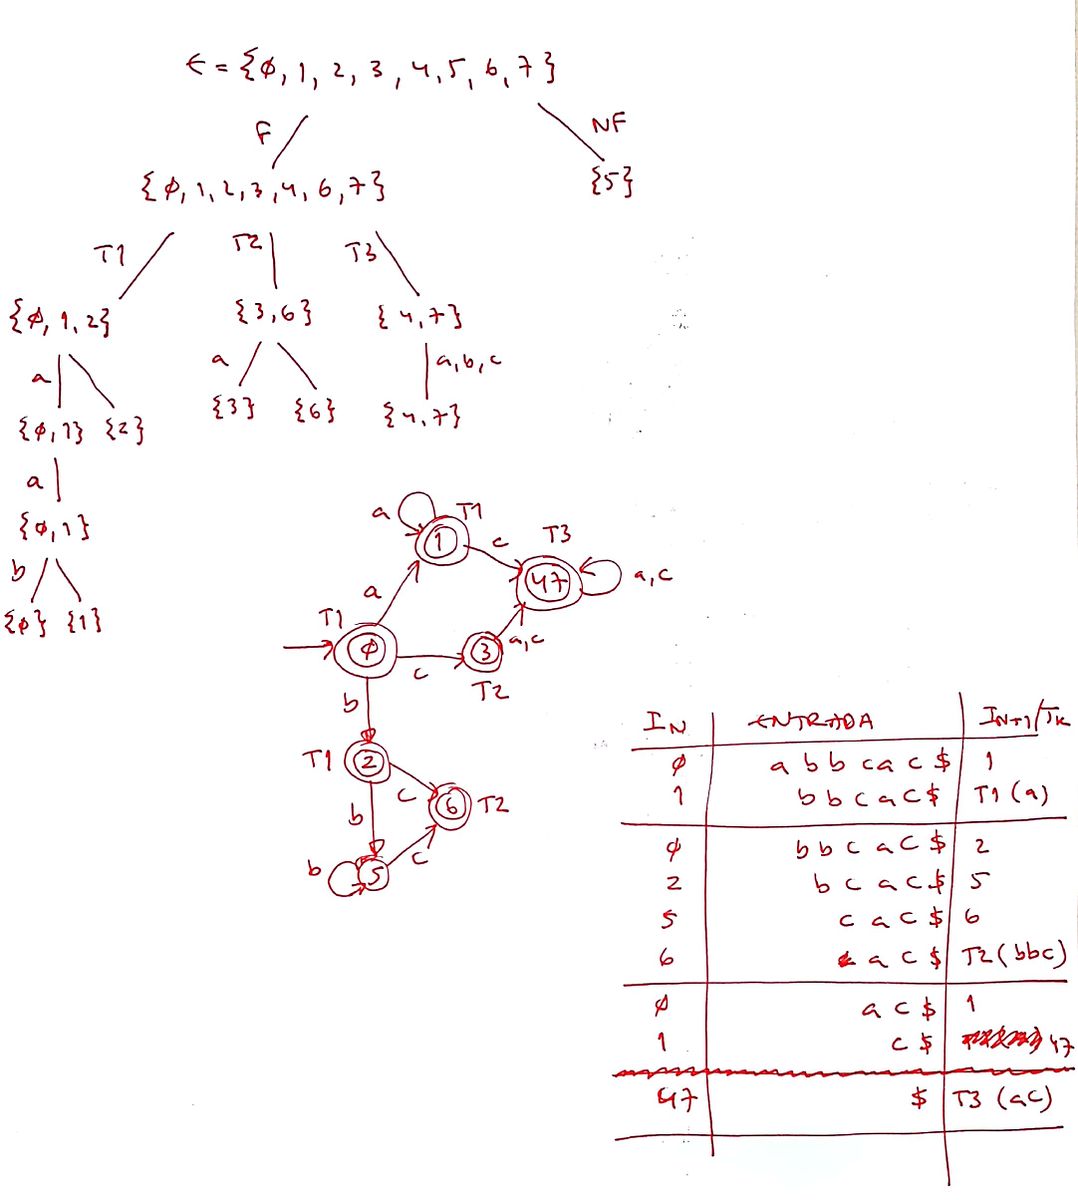 E = {ϕ, 1, 2, 3, 4, 5, 6, 7}
F NF
{ϕ, 1, 2, 3, 4, 6, 7} {5}
T1 T2 T3
{ϕ, 1, 2} {3, 6} {4, 7}
a a a, b, c
{ϕ, 1} {2} {3} {6} {4, 7}
a
{ϕ, 1}
b
{ϕ} {1}
a T1
1 c T3
47 a, c
a
T1
ϕ c 3 a, c
T2
b
T1 2 c 6 T2
b
b 5 c
I_N ENTRADA I_N+1/T_K
ϕ a b b c a c $ 1
1 b b c a c $ T1 (a)
ϕ b b c a c $ 2
2 b c a c $ 5
5 c a c $ 6
6 a c $ T2 (bbc)
ϕ a c $ 1
1 c $ 47
47 $ T3 (ac)